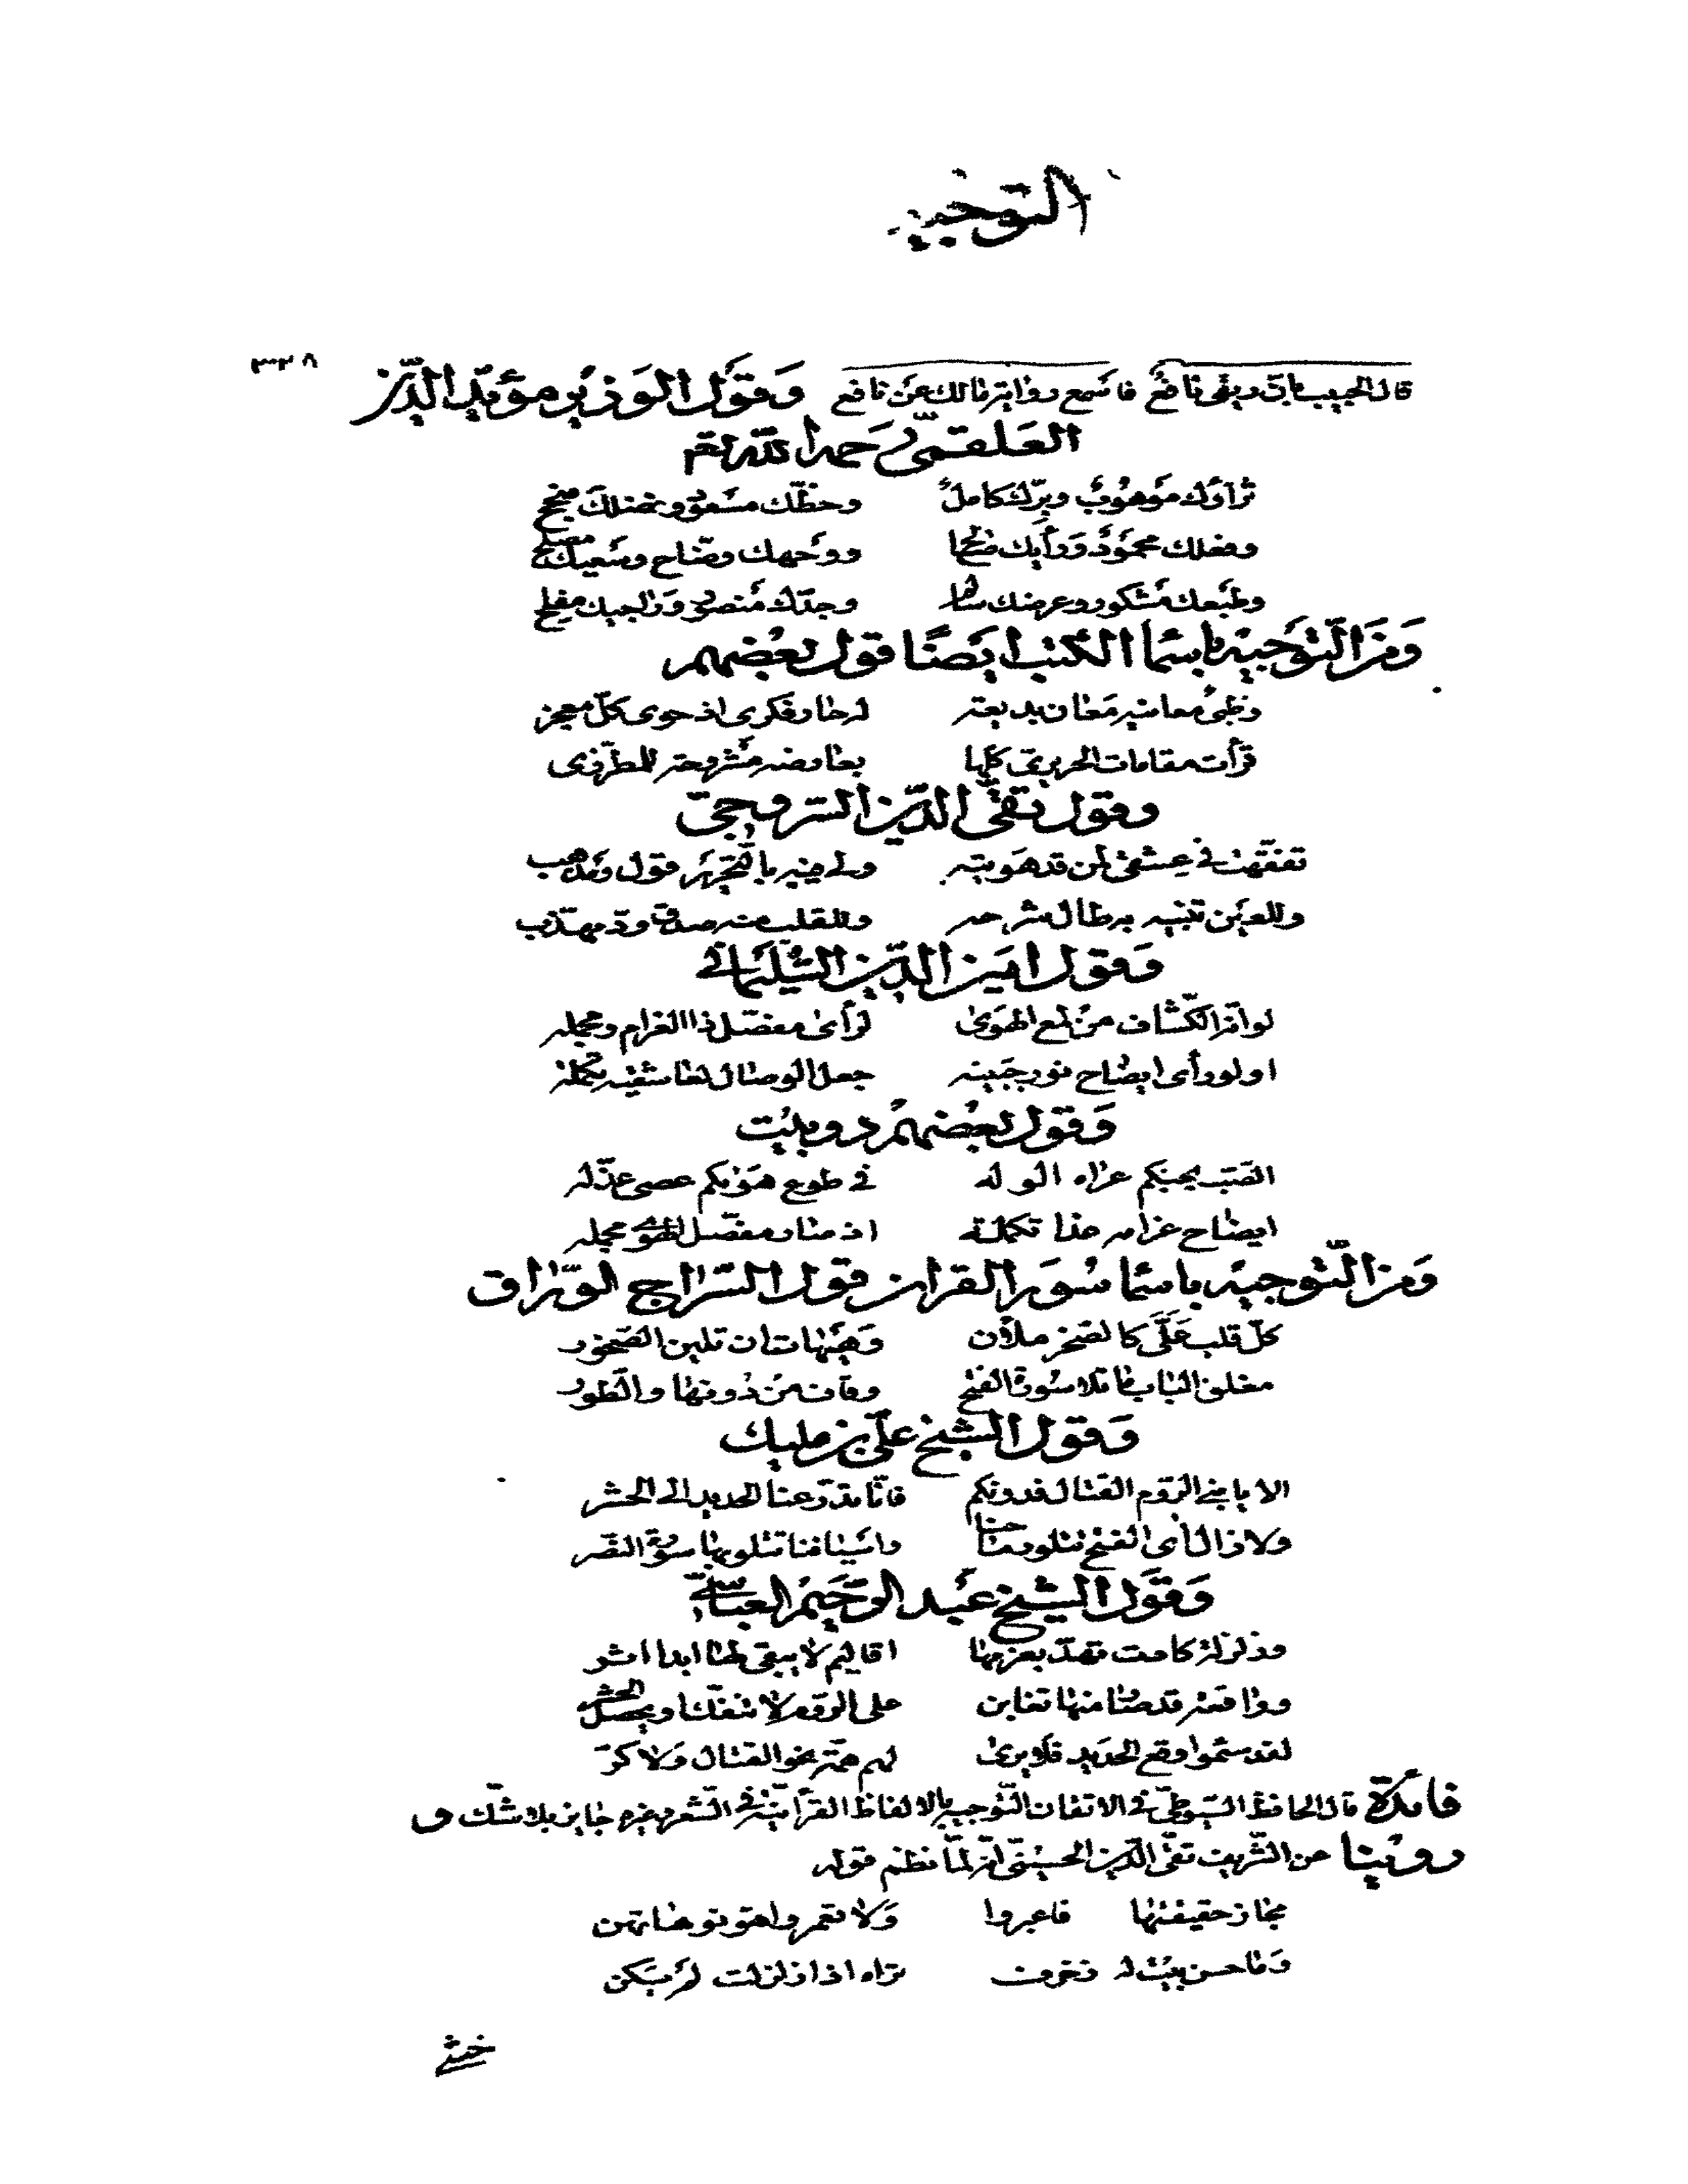 التوجيه
٣٣٨
قال الحبيب بان ريقى نافع فاسمع رواية مالك عن نافع وَقَوْل الوَزير مؤيّد الدّين
العَلقميّ رَحمه الله تعالى
ثراؤك مَوهُوبٌ وبرّك كاملٌ وحظّك مسْعود وفضلك منجح
وفعلك محمُودٌ وَرأيك صالح ووَجهك وضّاح وسَعيك مصلح
وطبْعك مشكور وعرضك سالم وجدّك مَنصور وَراجيك مفلح
وَمنَ التّوْجيه باسْما الكتب ايضًا قول بعْضهم
وظبىٌ معانيه مَعان بديعة له حار فكرى اذ حوى كلّ معجز
قرأت مقامات الحريرىّ كلها بعارضه مشروحة للمطرّزى
وقول تقىّ الدّين السّروجىّ
تفقّهت فى عشقى لمن قد هَويته ولى فيه بالتّحرير قول ومَذهب
وللعيَن تنبيه به طال شرحه وللقلب منه صدق ودّ مهذّب
وَقول امين الدّين السّليْمانى
لو انّ الكشّاف منْ لمع الهَوىٰ لرأىٰ مفصّل ذا الغرام ومجمله
او لو رأى ايضاح نور جَبينه جعل الوصال لعاشقيه تكمله
وَقول بعْضهمْ دوبيْت
الصّبّ بحبّكم عراه الوله فى طوع هَوٰيكم عصى عذّله
ايضاح غرامه غدا تكملة اذ صار مفصّل الهوى مجمله
وَمن التّوجيْه باسْما سُوَر القران قول السّرٰاج الورّاق
كلّ قلب عَلَىَّ كالصّخر ملآن وَهيْهات ان تلين الصّخور
مغلق الباب ما تلا سُورة الفتح وقاف منْ دُونها والطّور
وَقول الشيخ علىّ بن مليك
الا يا بنى الرّوم القتال فدونكم فانّا تدرّعنا الحديد الى الحشر
ولا زال اى الفتح نتلو معنا واسْيافنا تتلو بها سورة النصّر
وَقَول الشيخ عبْد الرّحيْم العبّاسىّ
وزلزلة كادت تهدّ بعزمها اقاليم لا يبقى لها ابدا اثر
وواقعة قد صُنا منها تغابن على الرّوم لا تنفكّ او يحصل الحشر
لقد سئموا وقع الحدَيد فلا يرىٰ لهم همّة نحو القتال وَلا كرّ
فائدة قال الحافظ السّيوطىّ فى الاتقان التّوْجيه بالالفاظ القرأنيّة فى الشّعر وغيره جايز بلا شكّ و
روينا عن الشّريف تقىّ الدّين الحسينىّ انّه لمّا نظم قوله
مجاز حقيقتها فاعبروا وَلا تعمروا هوّنوها تهن
وَما حسن بيْت له زخرف تراه اذا زلزلت لمْ يَكن
خشى